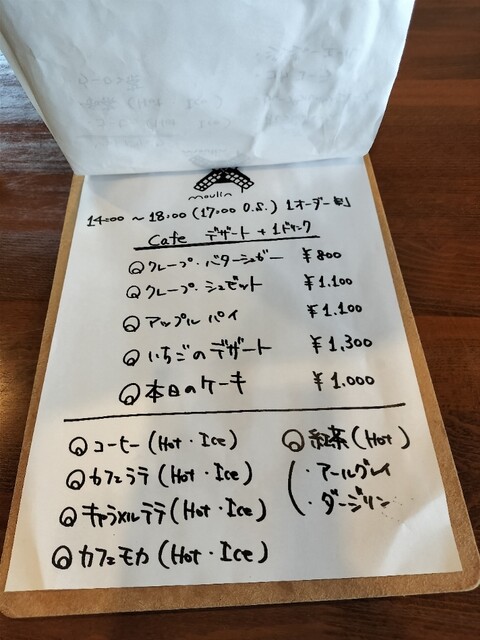 moulin
14:00 〜 18:00 (17:00 O.S.) 1オーダー制
Cafe デザート + 1ドリンク
クレープ・バターシュガー ¥800
クレープ・シュゼット ¥1.100
アップルパイ ¥1.100
いちごのデザート ¥1,300
本日のケーキ ¥1.000
コーヒー (Hot・Ice)
カフェラテ (Hot・Ice)
キャラメルラテ (Hot・Ice)
カフェモカ (Hot・Ice)
紅茶 (Hot)
・アールグレイ
・ダージリン